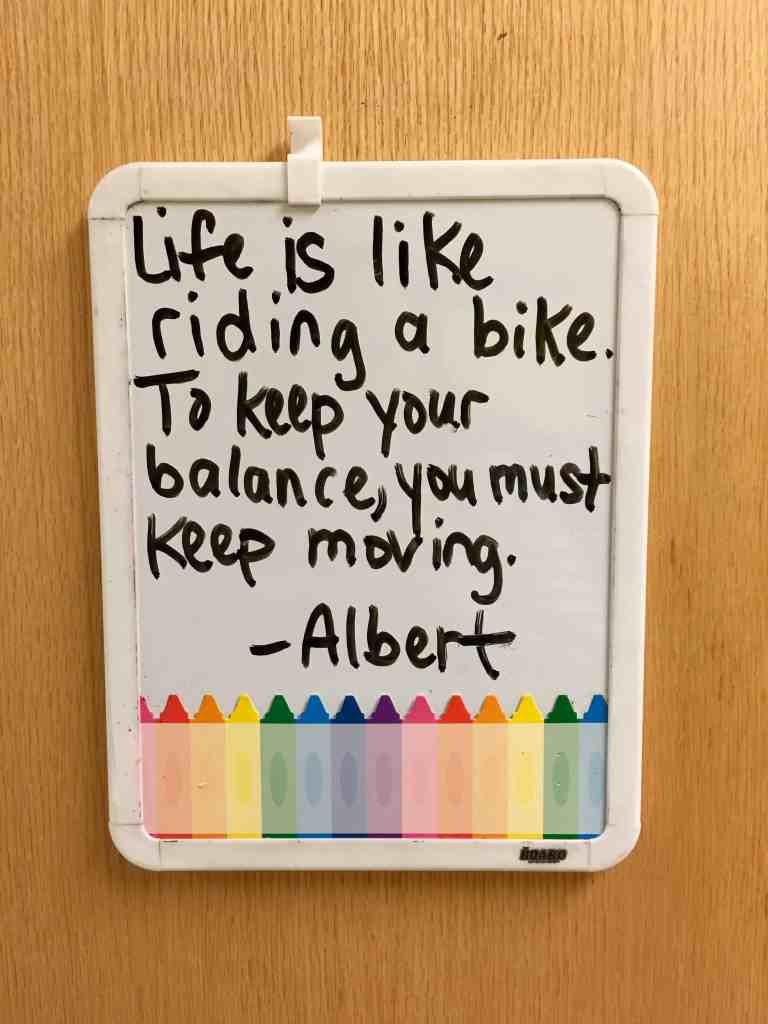 Life is like
riding a bike.
To keep your
balance, you must
keep moving.
-Albert
BOARD